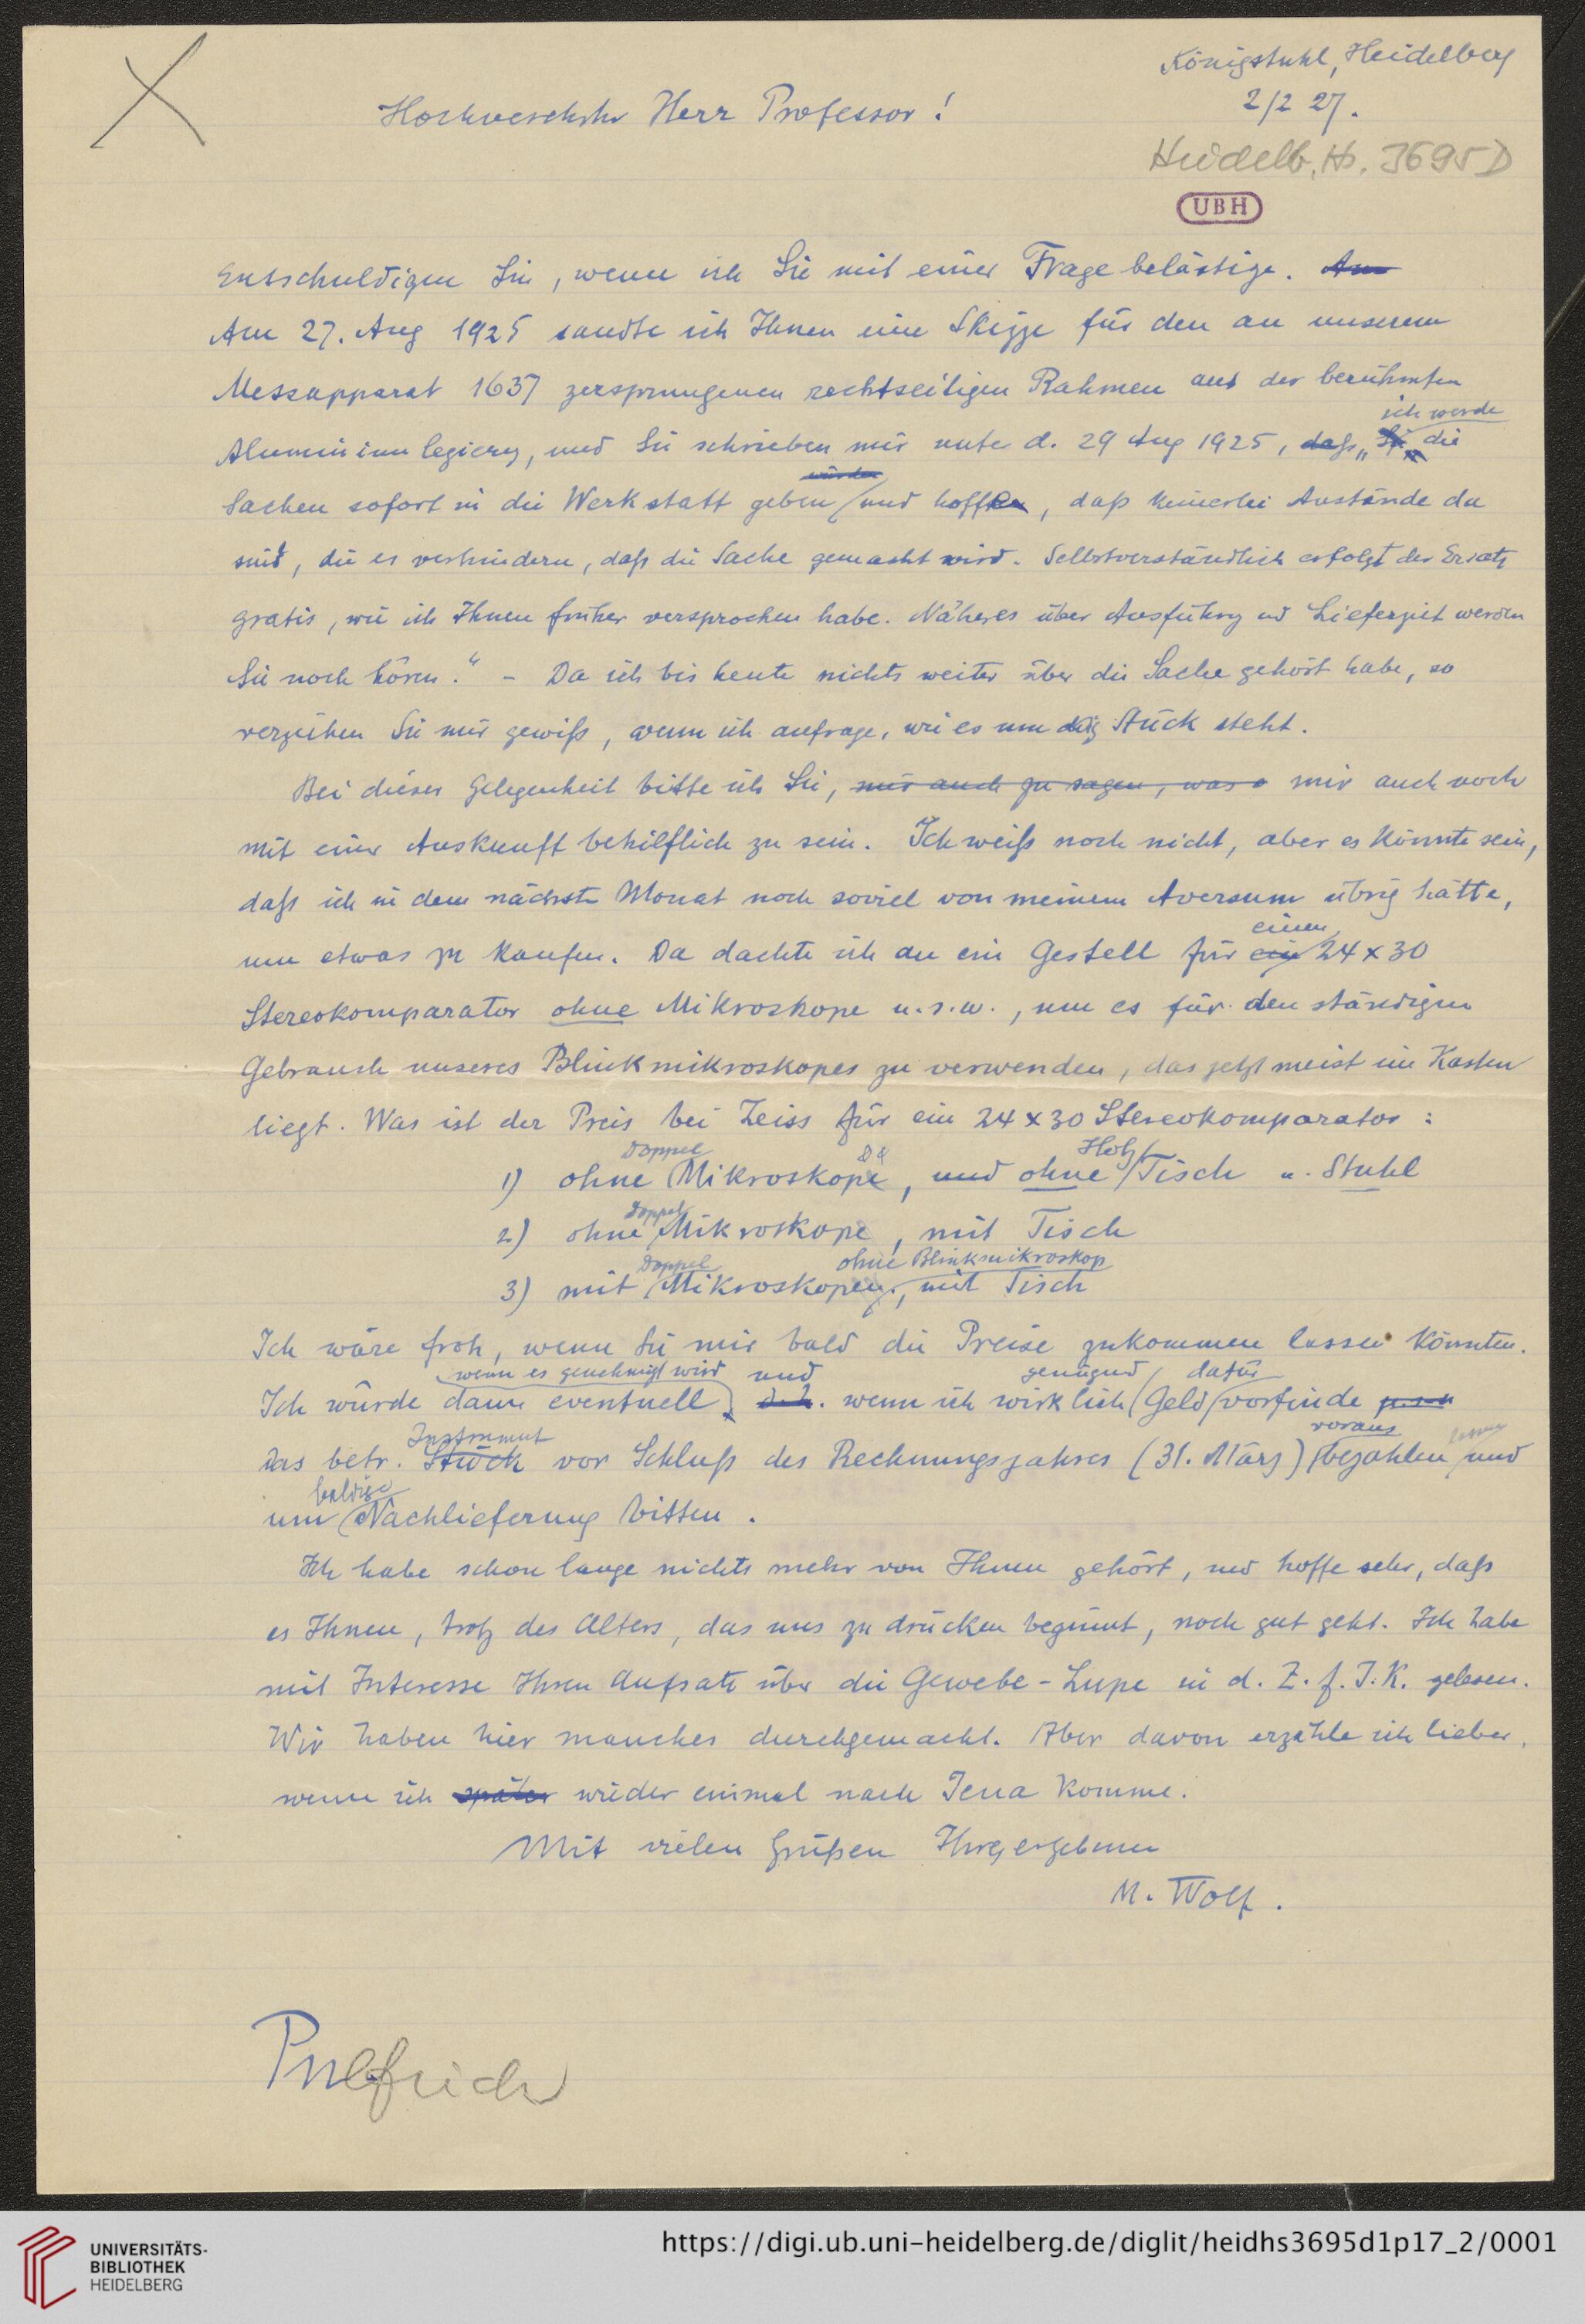 Königstuhl, Heidelberg
2/2 27.
Hochverehrter Herr Professor!
Heidelb. Hs. 3695 D
UBH
Entschuldigen Sie, wenn ich Sie mit einer Frage belästige. Am
Am 27. Aug 1925 sandte ich Ihnen eine Skizze für den an unserem
Messapparat 1637 zersprungenen rechtseitigen Rahmen aus der berühmten
ich werde
Aluminium legierg, und Sie schrieben mir unter d. 29 Aug 1925, daß „Sie die
würden
Sachen sofort in die Werkstatt geben und hoffen, daß keinerlei Anstände da
sind, die es verhindern, daß die Sache gemacht wird. Selbstverständlich erfolgt der Ersatz
gratis, wie ich Ihnen früher versprochen habe. Näheres über Ausführg und Lieferzeit werden
Sie noch hören." - Da ich bis heute nichts weiter über die Sache gehört habe, so
verzeihen Sie mir gewiß, wenn ich anfrage, wie es um das Stück steht.
Bei dieser Gelegenheit bitte ich Sie, mir auch zu sagen, was mir auch noch
mit einer Auskunft behilflich zu sein. Ich weiß noch nicht, aber es könnte sein,
daß ich in dem nächste Monat noch soviel von meinem Aversum übrig hätte,
einen
um etwas zu kaufen. Da dachte ich an ein Gestell für ein 24 x 30
Stereokomparator ohne Mikroskope u.s.w., um es für den ständigen
Gebrauch unseres Blinkmikroskopes zu verwenden, das jetzt meist im Kasten
liegt. Was ist der Preis bei Zeiss für ein 24 x 30 Stereokomparator:
Doppel Holz
1) ohne Mikroskope, und ohne Tisch u. Stuhl
Doppel
2) ohne Mikroskope, mit Tisch
Doppel ohne Blinkmikroskop
3) mit Mikroskopen, mit Tisch
Ich wäre froh, wenn Sie mir bald die Preise zukommen lassen könnten.
wenn es genehmigt wird und genügend dafür
Ich würde dann eventuell d.h. wenn ich wirklich Geld vorfinde
Instrument voraus lassen
das betr. Stück vor Schluß des Rechnungsjahres (31. März) bezahlen und
baldige
um Nachlieferung bitten.
Ich habe schon lange nichts mehr von Ihnen gehört, und hoffe sehr, daß
es Ihnen, trotz des Alters, das uns zu drücken beginnt, noch gut geht. Ich habe
mit Interesse Ihren Aufsatz über die Gewebe-Lupe in d. Z. f. I. K. gelesen.
Wir haben hier manches durchgemacht. Aber davon erzähle ich lieber,
wenn ich später wieder einmal nach Jena komme.
Mit vielen Grüßen Ihr ergebener
M. Wolf.
Pulfrich
UNIVERSITÄTS-
BIBLIOTHEK
HEIDELBERG
https://digi.ub.uni-heidelberg.de/diglit/heidhs3695d1p17_2/0001